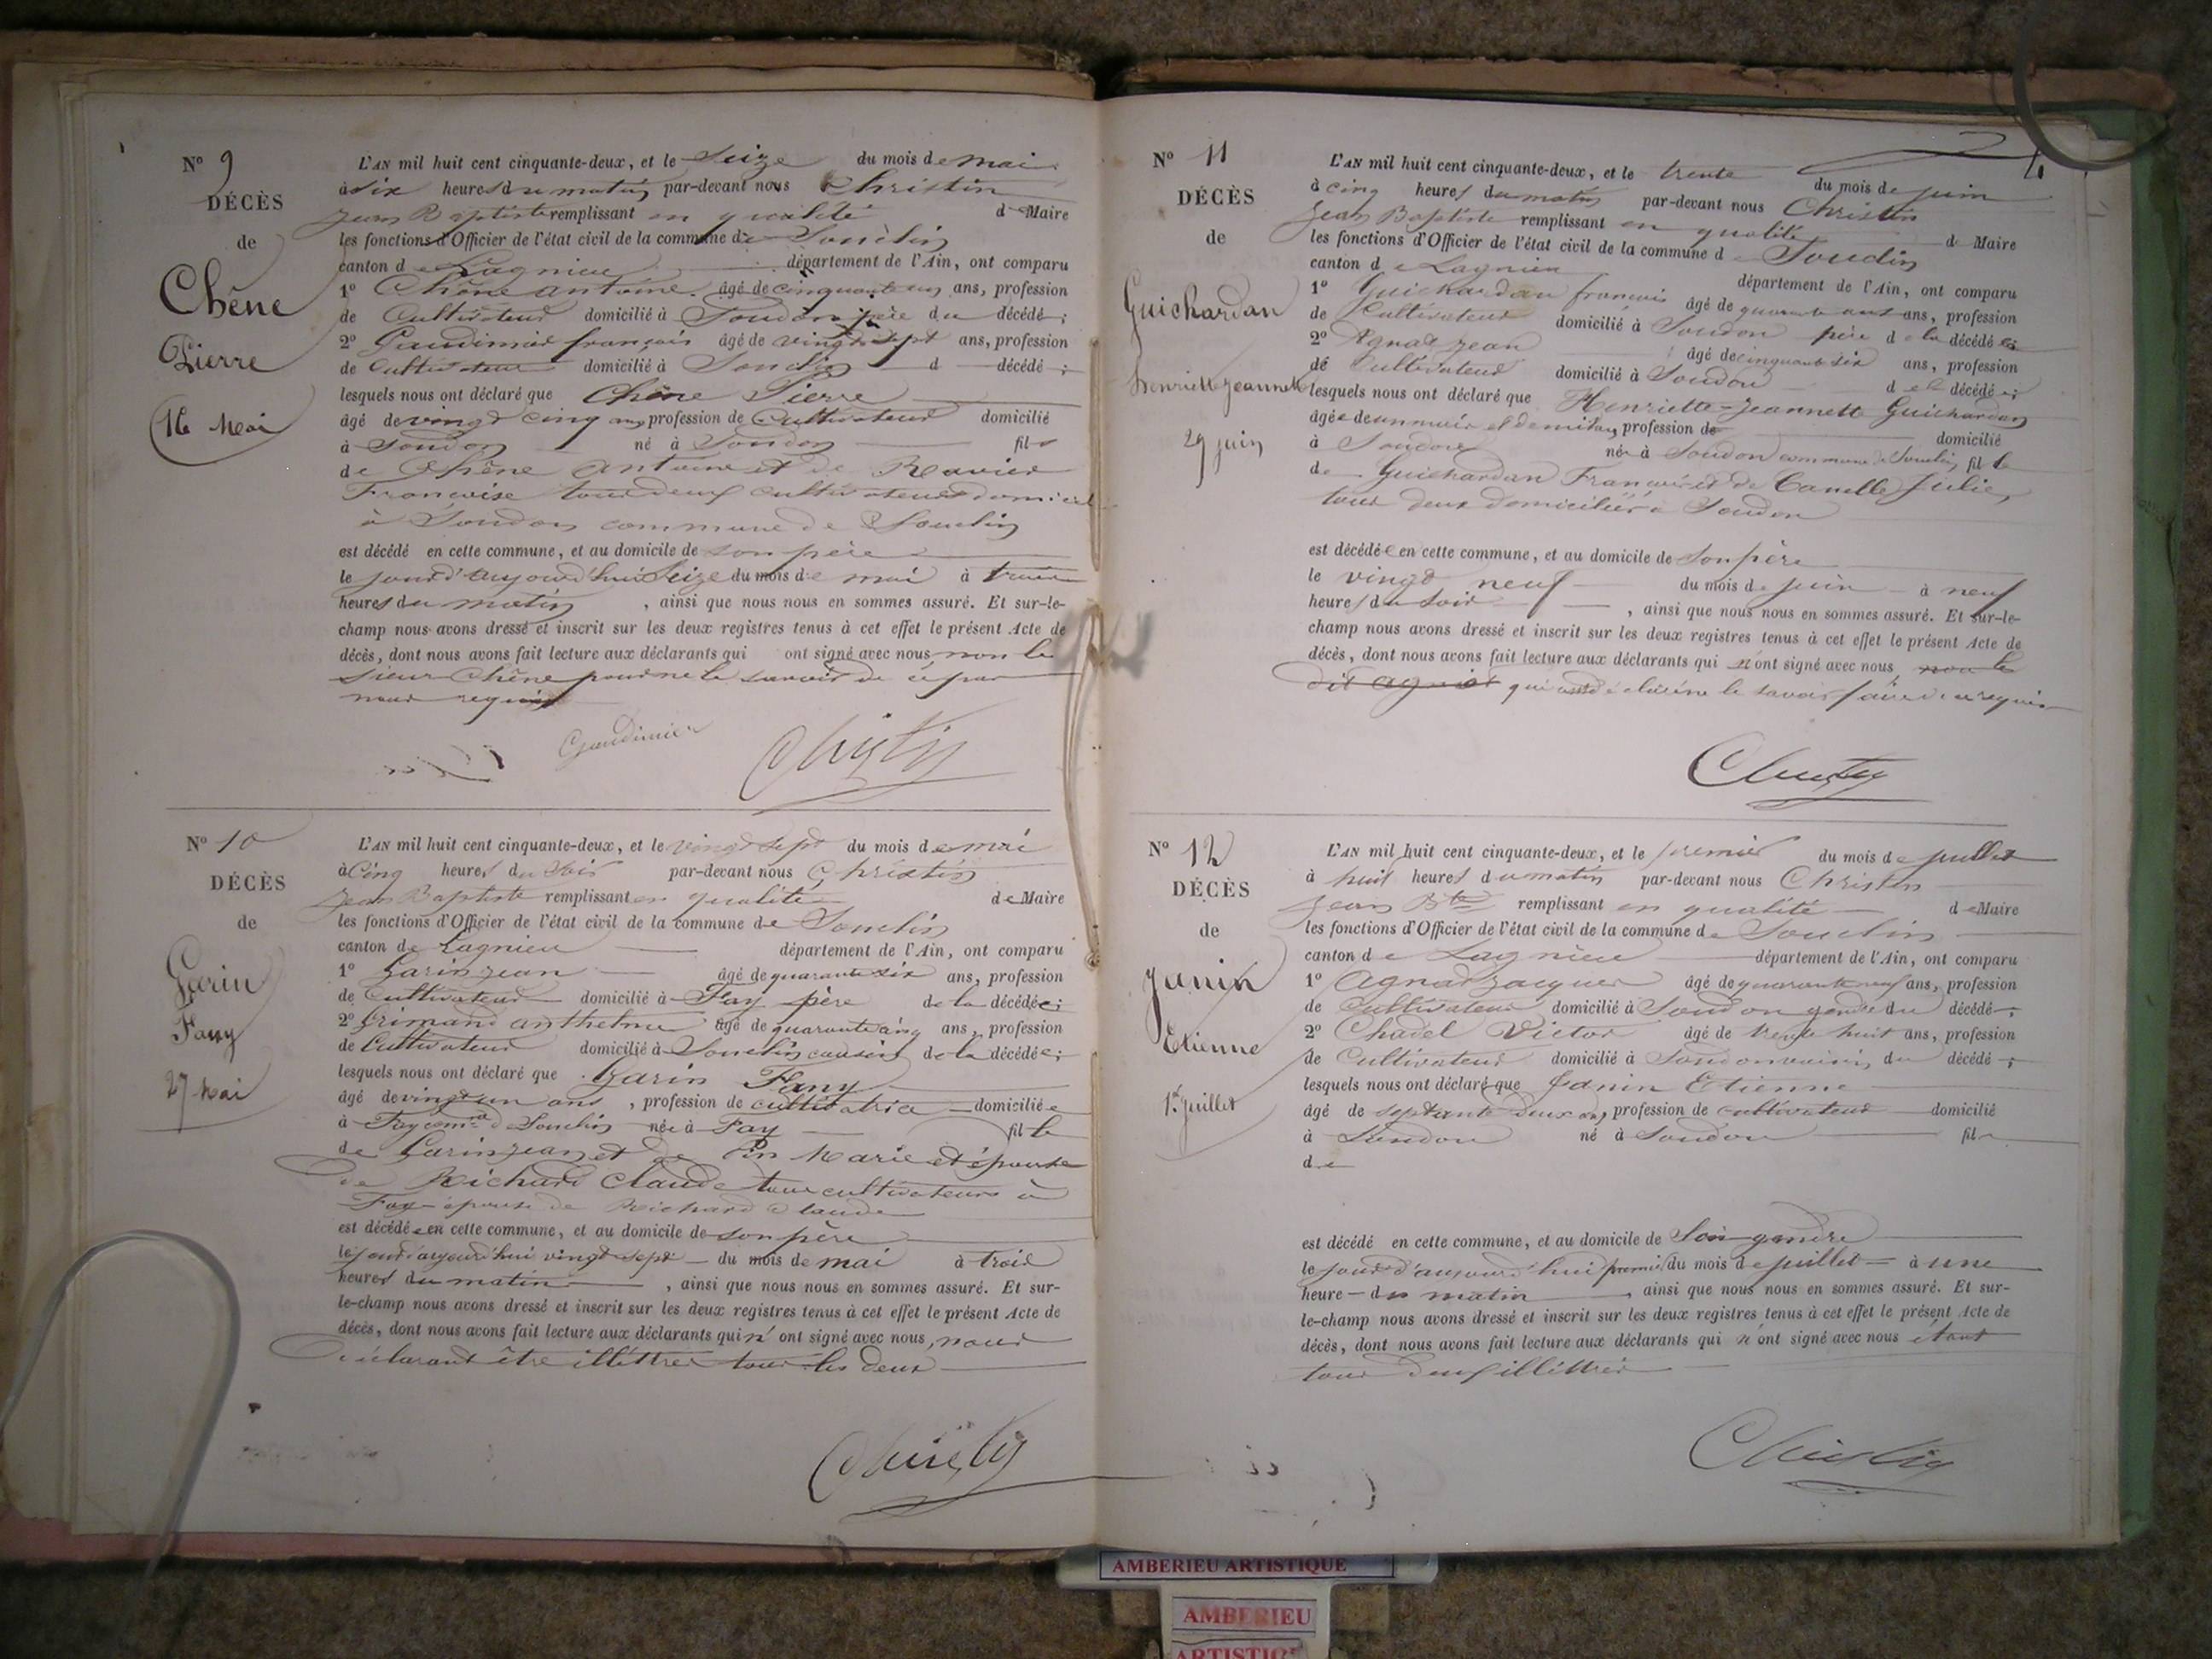 N° 9
DÉCÈS
de
Chêne
Pierre
16 Mai
L'AN mil huit cent cinquante-deux, et le seize du mois de mai
à six heures du matin par-devant nous Christin
Jean Baptiste remplissant en qualité de Maire
les fonctions d'Officier de l'état civil de la commune de Souclin
canton de Lagnieu département de l'Ain, ont comparu
1° Chêne antoine âgé de cinquante un ans, profession
de Cultivateur domicilié à Soudon père du décédé ;
2° Gaudimier françois âgé de vingt sept ans, profession
de Cultivateur domicilié à Souclin d décédé ;
lesquels nous ont déclaré que Chêne Pierre
âgé de vingt cinq ans profession de Cultivateur domicilié
à Soudon né à Soudon fils
de Chêne antoine et de Ravier
Françoise tous deux cultivateurs domicil
à Soudon commune de Souclin
est décédé en cette commune, et au domicile de son père
le jour d'aujourd'hui seize du mois de mai à trois
heures du matin , ainsi que nous nous en sommes assuré. Et sur-le-
champ nous avons dressé et inscrit sur les deux registres tenus à cet effet le présent Acte de
décès, dont nous avons fait lecture aux déclarants qui ont signé avec nous non le
sieur Chêne pour ne le savoir de ce par
nous requis
Gaudimier Christin
N° 10
DÉCÈS
de
Garin
Fany
27 Mai
L'AN mil huit cent cinquante-deux, et le vingt sept du mois de mai
à Cinq heures du soir par-devant nous Christin
Jean Baptiste remplissant en qualité de Maire
les fonctions d'Officier de l'état civil de la commune de Souclin
canton de Lagnieu département de l'Ain, ont comparu
1° Garin jean âgé de quarante six ans, profession
de Cultivateur domicilié à Fay père de la décédée ;
2° Grimand anthelme âgé de quarante cinq ans, profession
de Cultivateur domicilié à Souclin cousin de la décédée ;
lesquels nous ont déclaré que Garin Fany
âgé de vingt un ans , profession de cultivatrice domiciliée
à Fay comne de Souclin née à Fay fille
de Garin jean et de Pin Marie et épouse
de Richard Claude tous cultivateurs à
Fay épouse de Richard Claude
est décédée en cette commune, et au domicile de son père
le jour d'aujourd'hui vingt sept du mois de mai à trois
heures du matin , ainsi que nous nous en sommes assuré. Et sur-
le-champ nous avons dressé et inscrit sur les deux registres tenus à cet effet le présent Acte de
décès, dont nous avons fait lecture aux déclarants qui n'ont signé avec nous, nous
déclarant être illéttrés tous les deux
Christin
N° 11
DÉCÈS
de
Guichardan
henriette jeannette
29 juin
L'AN mil huit cent cinquante-deux, et le trente du mois de juin
à cinq heures du matin par-devant nous Christin
Jean Baptiste remplissant en qualité de Maire
les fonctions d'Officier de l'état civil de la commune de Souclin
canton de Lagnieu département de l'Ain, ont comparu
1° Guichardan françois âgé de quarante ans, profession
de Cultivateur domicilié à Soudon père de la décédée
2° Agnat jean âgé de cinquante six ans, profession
de Cultivateur domicilié à Soudon de la décédée ;
lesquels nous ont déclaré que Henriette-Jeannette Guichardan
âgée de un mois et demi profession de domicilié
à Soudon née à Soudon commune de Souclin fille
de Guichardan François et de Canelle Julie,
tous deux domiciliés à Soudon
est décédée en cette commune, et au domicile de son père
le vingt neuf du mois de juin à neuf
heures du soir , ainsi que nous nous en sommes assuré. Et sur-le-
champ nous avons dressé et inscrit sur les deux registres tenus à cet effet le présent Acte de
décès, dont nous avons fait lecture aux déclarants qui n'ont signé avec nous non le
dit agnat qui ont déclaré ne le savoir faire de ce requis
Christin
N° 12
DÉCÈS
de
Janin
Etienne
1er juillet
L'AN mil huit cent cinquante-deux, et le premier du mois de juillet
à huit heures du matin par-devant nous Christin
Jean Bte remplissant en qualité de Maire
les fonctions d'Officier de l'état civil de la commune de Souclin
canton de Lagnieu département de l'Ain, ont comparu
1° Agnat jacques âgé de quarante neuf ans, profession
de Cultivateur domicilié à Soudon gendre du décédé ;
2° Chadel Victor âgé de trente huit ans, profession
de Cultivateur domicilié à Soudon voisin du décédé ;
lesquels nous ont déclaré que Janin Etienne
âgé de septante deux ans profession de cultivateur domicilié
à Soudon né à Soudon fils
de
est décédé en cette commune, et au domicile de son gendre
le jour d'aujourd'hui premier du mois de juillet à une
heure du matin , ainsi que nous nous en sommes assuré. Et sur-
le-champ nous avons dressé et inscrit sur les deux registres tenus à cet effet le présent Acte de
décès, dont nous avons fait lecture aux déclarants qui n'ont signé avec nous étant
tous deux illéttrés
Christin
AMBERIEU ARTISTIQUE
AMBERIEU
ARTISTIQUE